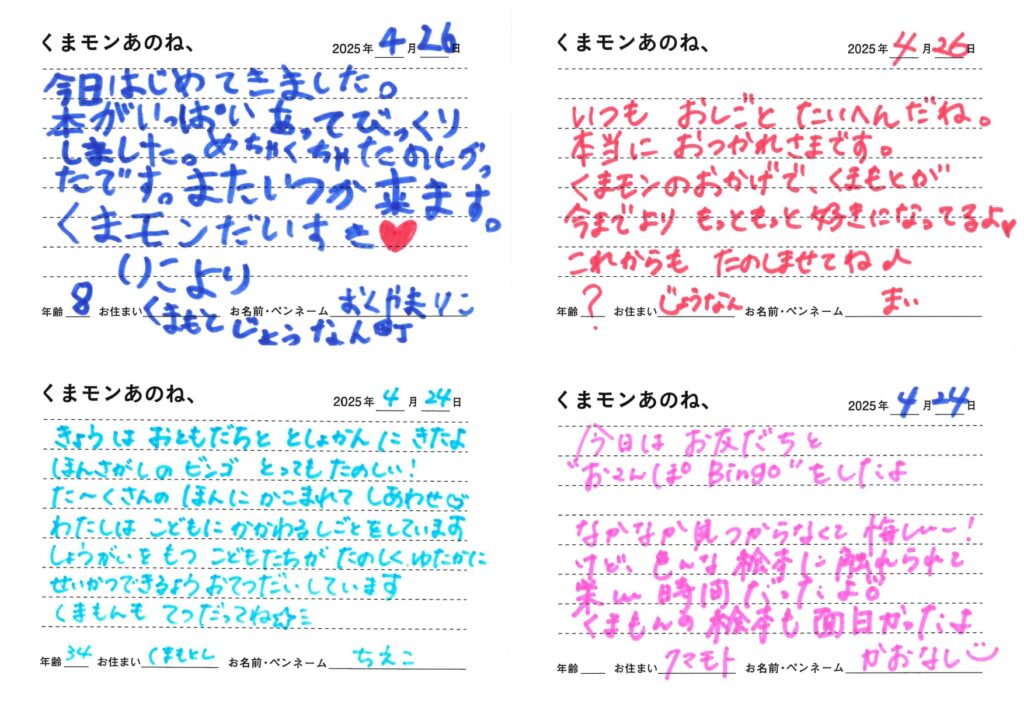 くまモンあのね、
2025年 4 月 26 日
今日はじめてきました。
本がいっぱいあってびっくり
しました。めちゃくちゃたのしかっ
たです。またいつか来ます。
くまモンだいすき♥
りこより
年齢 8 お住まい くまもとじょうなん町 お名前・ペンネーム おくやまりこ
くまモンあのね、
2025年 4 月 26 日
いつも おしごと たいへんだね。
本当に おつかれさまです。
くまモンのおかげで、くまもとが
今までより もっともっと 好きになってるよ♥
これからも たのしませてね♪
年齢 ? お住まい じょうなん お名前・ペンネーム まい
くまモンあのね、
2025年 4 月 24 日
きょうは おともだちと としょかんに きたよ
ほんさがしの ビンゴ とっても たのしい!
た〜くさんの ほんに かこまれて しあわせ
わたしは こどもに かかわる しごとをしています
しょうがいを もつ こどもたちが たのしく ゆたかに
せいかつできるよう おてつだい しています
くまもんも てつだってね☆ミ
年齢 34 お住まい くまもとし お名前・ペンネーム ちえこ
くまモンあのね、
2025年 4 月 24 日
今日は お友だちと
"おさんぽ Bingo"をしたよ
なかなか見つからなくて 悔しい〜!
けど、色んな 絵本に 触れられて
楽しい 時間 だったよ
くまもんの 絵本も 面白かったよ
年齢 お住まい クマモト お名前・ペンネーム かおなし